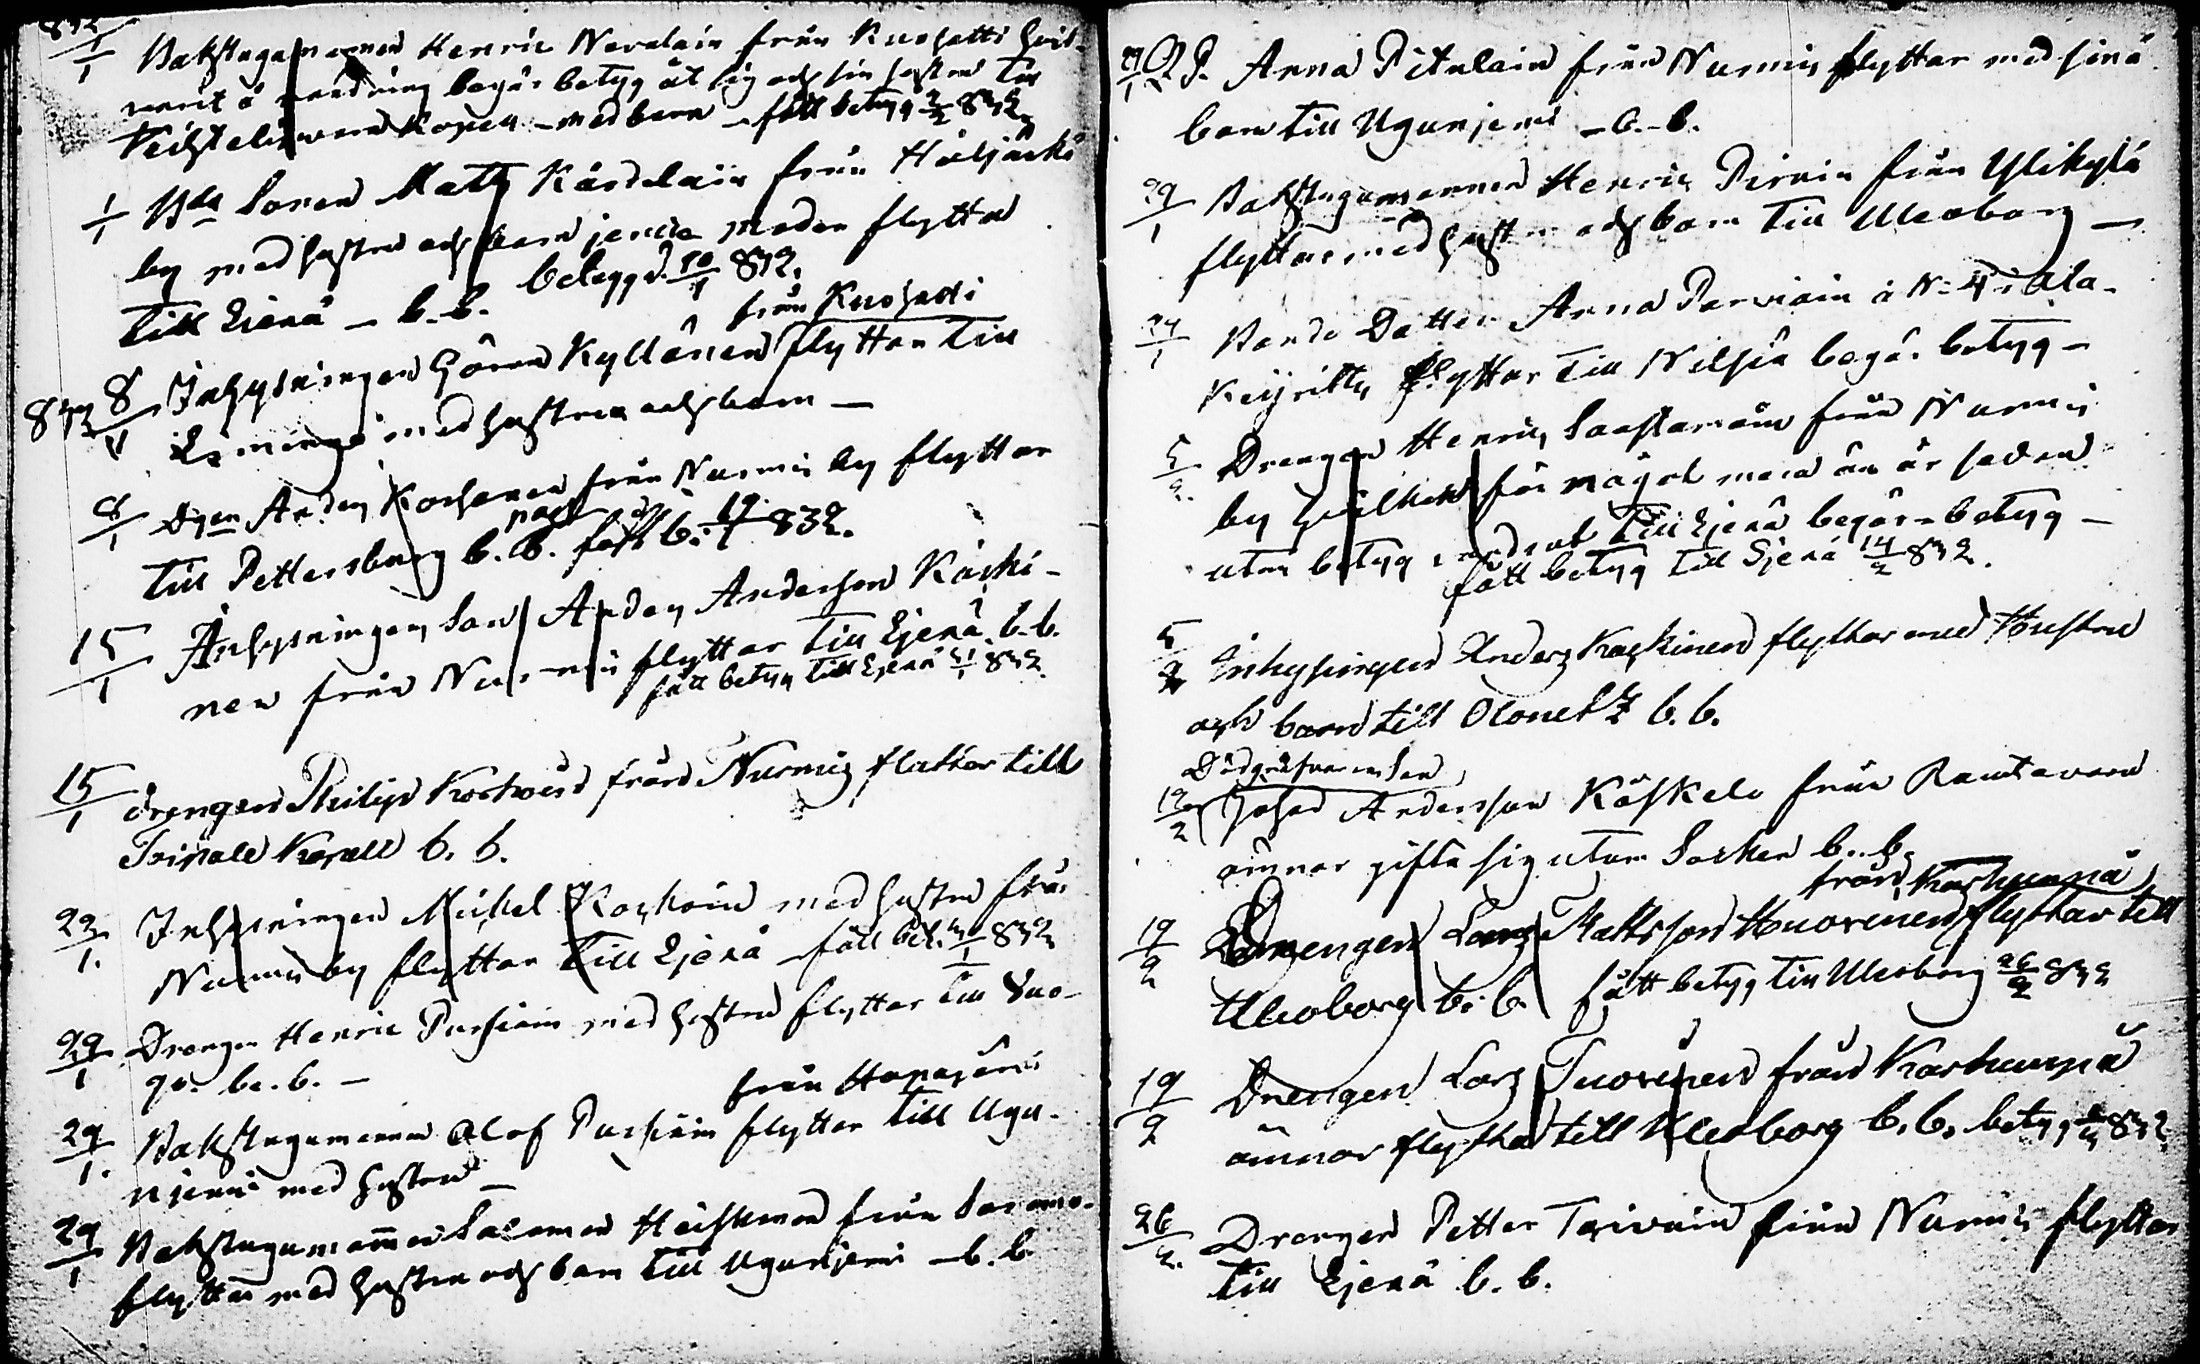 832
1/1 Bakstugumannen Henric Nevalain från Kuohatti hvil-
varit å vandring begär betyg åt sig och sin hustru till
Kopen - med barn - fått betyg 2/2 832
1/1 Bde Sonen Matts Kärelain från Höljäkkä
by med hustru och barn jemte moder flyttar
till Ejenä - b.b. betygd. 10/1 832.
från Kuohatti
832 8/1 Inhysningen Göran Kyllönen flyttar till
Limingo med hustru och barn -
8/1 Dgen Anders Korhonen från Nurmis by flyttar
till Pettersburg b. B. pass fått b. 19/1 832.
15/1 Inhysningens Son Anders Andersson Käski-
nen från Nurmis flyttar till Ejenä. b.b.
fått betyg till Ejenä 31/1 832
15/1 drengen Philip Korhoin från Nurmis flyttar till
Kapell b. b.
22/1. Inhysningen Mickel Korhoin med hustru från
Nurmis by flyttar till Ejenä - fått bet. 832
29/1 Drengen Henric Pursiain med hustru flyttar till Suo-
jo. be. b. -
från Hopajärvi
29/1. Bakstugumannen Olof Pursiain flyttar till Ugu-
njemi med hustru -
29/1 Bakstugumannen Salomon Heiskanen från Saramo
flyttar med hustru och barn till Ugunjemi - b. b
29/1 B.D. Anna Pitulain från Nurmis flyttar med sina
barn till Ugunjemi - b.-b.
29/1 Bakstugumannen Henric Pirnin från Ylikylä
flyttar med hustru och barn till Uleoborg -
29/1 Bonde Dotter Anna Parviain å N: 4 i Ala-
Keyritty flyttar till Nilsiä begär betyg -
5/2. Drengen Henric Saastamoin från Nurmis
by hvilken för något mera än år sedan
utan betyg vandrat till Ejenä begär betyg -
fått betyg till Ejenä 14/2 832.
5/2 Inhysingen Anders Kaskinen flyttar med Hustru
och barn till Olonetz b. b.
Dödgräfvarens Son
12/2 Johan Andersson Käskelo från Rautavara
ämnar gifta sig utom Socken b. b.
från Karhunpä
19/2 Drengen Lars Mattsson Huovinen flyttar till
Uleoborg b. b. fått betyg till Uleoborg 26/2 832
19/2 Drengen Lars Tuovinen från Karhunpä
ämnar flytta till Uleoborg b. b. betyg 832
26/2. Drengen Petter Toivain från Nurmis flyttar
till Ejenä b. b.